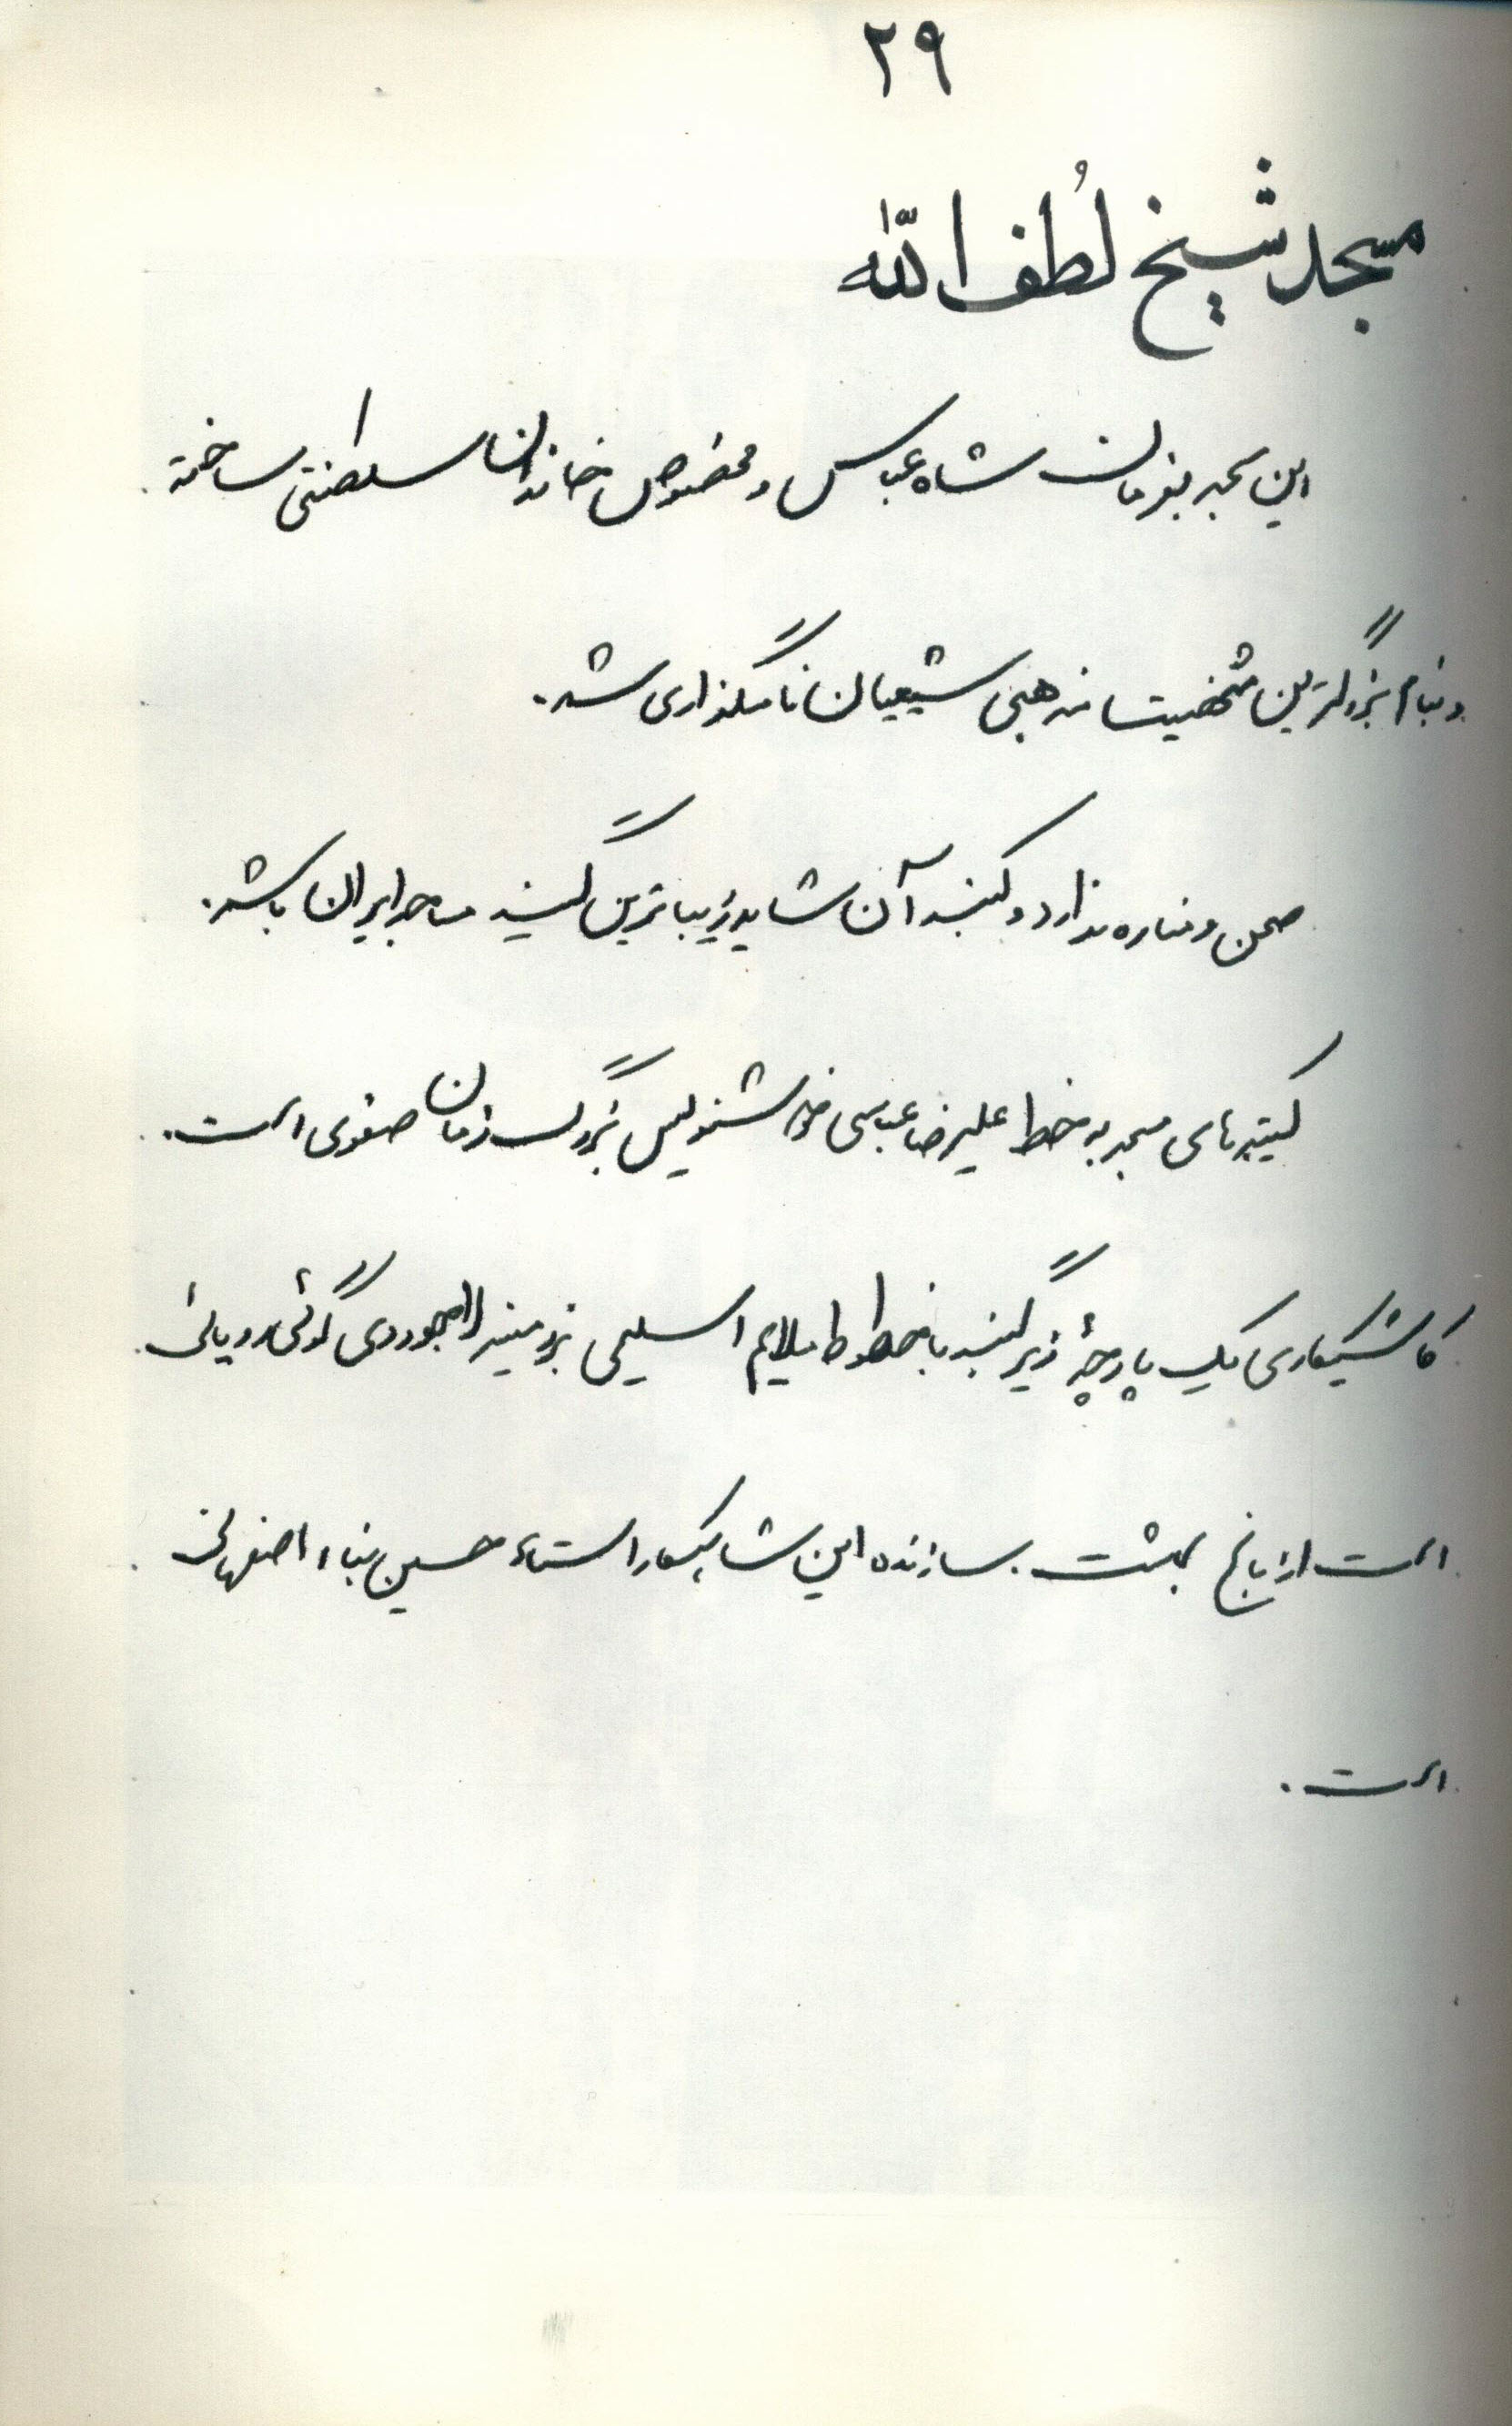 ۲۹
مسجد شیخ لُطف الله
این مسجد بفرمان شاه عباس و مخصوص خاندان سلطنتی ساخته
و بنام بزرگترین شخصیت مذهبی شیعیان نامگذاری شد.
صحن و مناره ندارد و گنبد آن شاید زیباترین گنبد مساجد ایران باشد.
کتیبه‌های مسجد به خط علیرضا عباسی خوشنویس بزرگ زمان صفوی است.
کاشیکاری یک پارچهٔ زیر گنبد با خطوط ملایم اسلیمی بر زمینه لاجوردی گوئی رویائی
است از باغ بهشت. سازنده این شاهکار استاد حسین بناء اصفهانی
است.